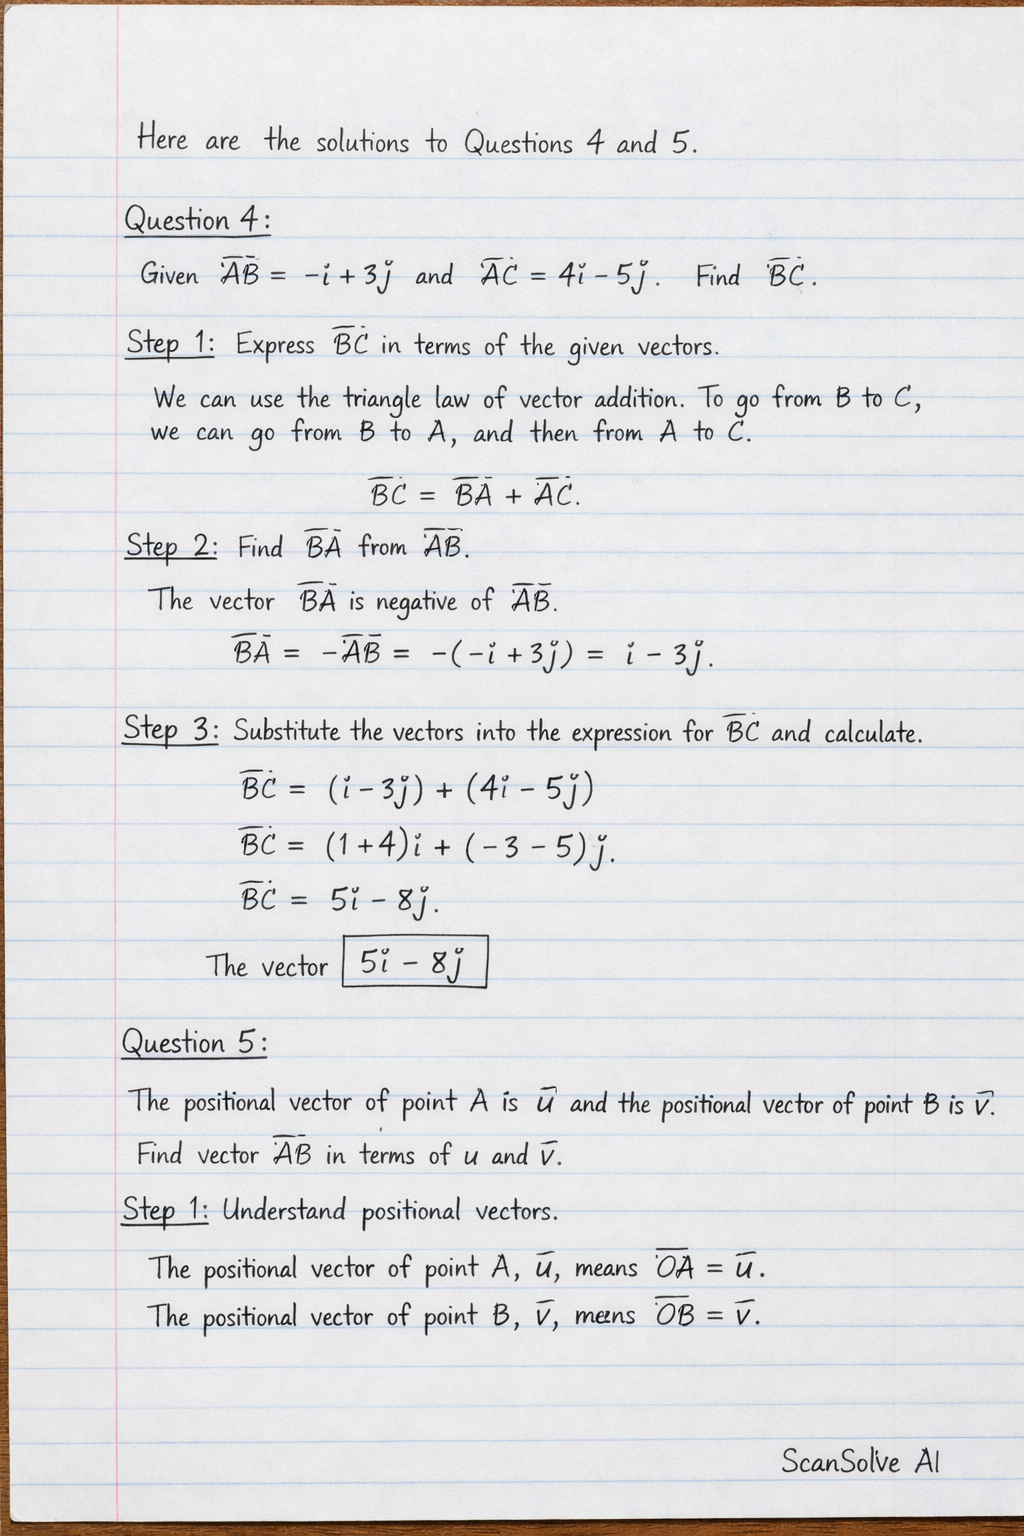 Here are the solutions to Questions 4 and 5.
Question 4:
Given A̅B̅ = -i + 3j and A̅C̅ = 4i - 5j. Find B̅C̅.
Step 1: Express B̅C̅ in terms of the given vectors.
We can use the triangle law of vector addition. To go from B to C,
we can go from B to A, and then from A to C.
B̅C̅ = B̅A̅ + A̅C̅.
Step 2: Find B̅A̅ from A̅B̅.
The vector B̅A̅ is negative of A̅B̅.
B̅A̅ = -A̅B̅ = -(-i + 3j) = i - 3j.
Step 3: Substitute the vectors into the expression for B̅C̅ and calculate.
B̅C̅ = (i - 3j) + (4i - 5j)
B̅C̅ = (1+4)i + (-3 - 5)j.
B̅C̅ = 5i - 8j.
The vector 5i - 8j
Question 5:
The positional vector of point A is u̅ and the positional vector of point B is v̅.
Find vector A̅B̅ in terms of u and v̅.
Step 1: Understand positional vectors.
The positional vector of point A, u̅, means O̅A̅ = u̅.
The positional vector of point B, v̅, means O̅B̅ = v̅.
ScanSolve AI